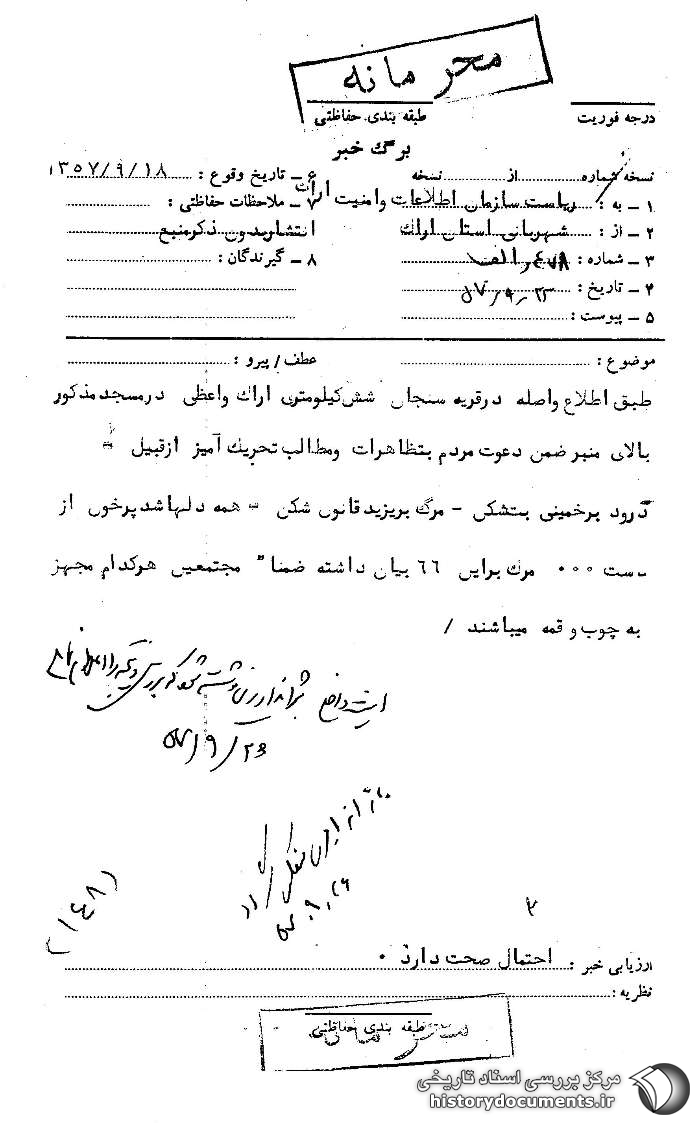 محرمانه
درجه فوریت
طبقه بندی حفاظتی
برگ خبر
نسخه شماره از نسخه
۶ - تاریخ وقوع : ۱۳۵۷/۹/۱۸
۱ - به : ریاست سازمان اطلاعات وامنیت اراک
۷ - ملاحظات حفاظتی :
۲ - از : شهربانی استان اراک
انتشاربدون ذکرمنبع
۳ - شماره : الف
۸ - گیرندگان :
۴ - تاریخ : ۵۷/۹/۲۳
۵ - پیوست :
موضوع :
عطف / پیرو :
طبق اطلاع واصله درقریه سنجان شش کیلومتری اراک واعظی درمسجد مذکور
بالای منبر ضمن دعوت مردم بتظاهرات ومطالب تحریک آمیز ازقبیل =
درود برخمینی بتشکن - مرگ بریزید قانون شکن = همه دلهاشد پرخون از
دست ۰۰۰ مرگ براین ٦٦ بیان داشته ضمنا" مجتمعین هوکدام مجهز
به چوب و قمه میباشند /
۵۷/۹/۲۳
(۱۴۸)
ارزیابی خبر : احتمال صحت دارد ۰
نظریه :
طبقه بندی حفاظتی
مرکز بررسی اسناد تاریخی
historydocuments.ir